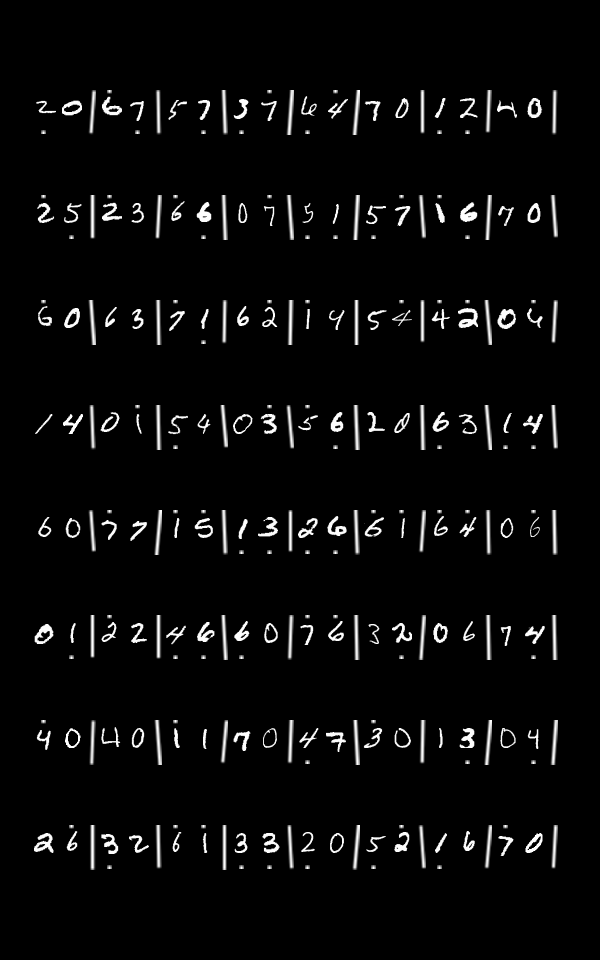 2 0 | 6 7 | 5 7 | 3 7 | 6 4 | 7 0 | 1 2 | 4 0 |
2 5 | 2 3 | 6 6 | 0 7 | 5 1 | 5 7 | 1 6 | 7 0 |
6 0 | 6 3 | 7 1 | 6 2 | 1 4 | 5 4 | 4 2 | 0 6 |
1 4 | 0 1 | 5 4 | 0 3 | 5 6 | 2 0 | 6 3 | 1 4 |
6 0 | 7 7 | 1 5 | 1 3 | 2 6 | 6 1 | 6 4 | 0 6 |
0 1 | 2 2 | 4 6 | 6 0 | 7 6 | 3 2 | 0 6 | 7 4 |
4 0 | 4 0 | 1 1 | 7 0 | 4 7 | 3 0 | 1 3 | 0 4 |
2 6 | 3 2 | 6 1 | 3 3 | 2 0 | 5 2 | 1 6 | 7 0 |